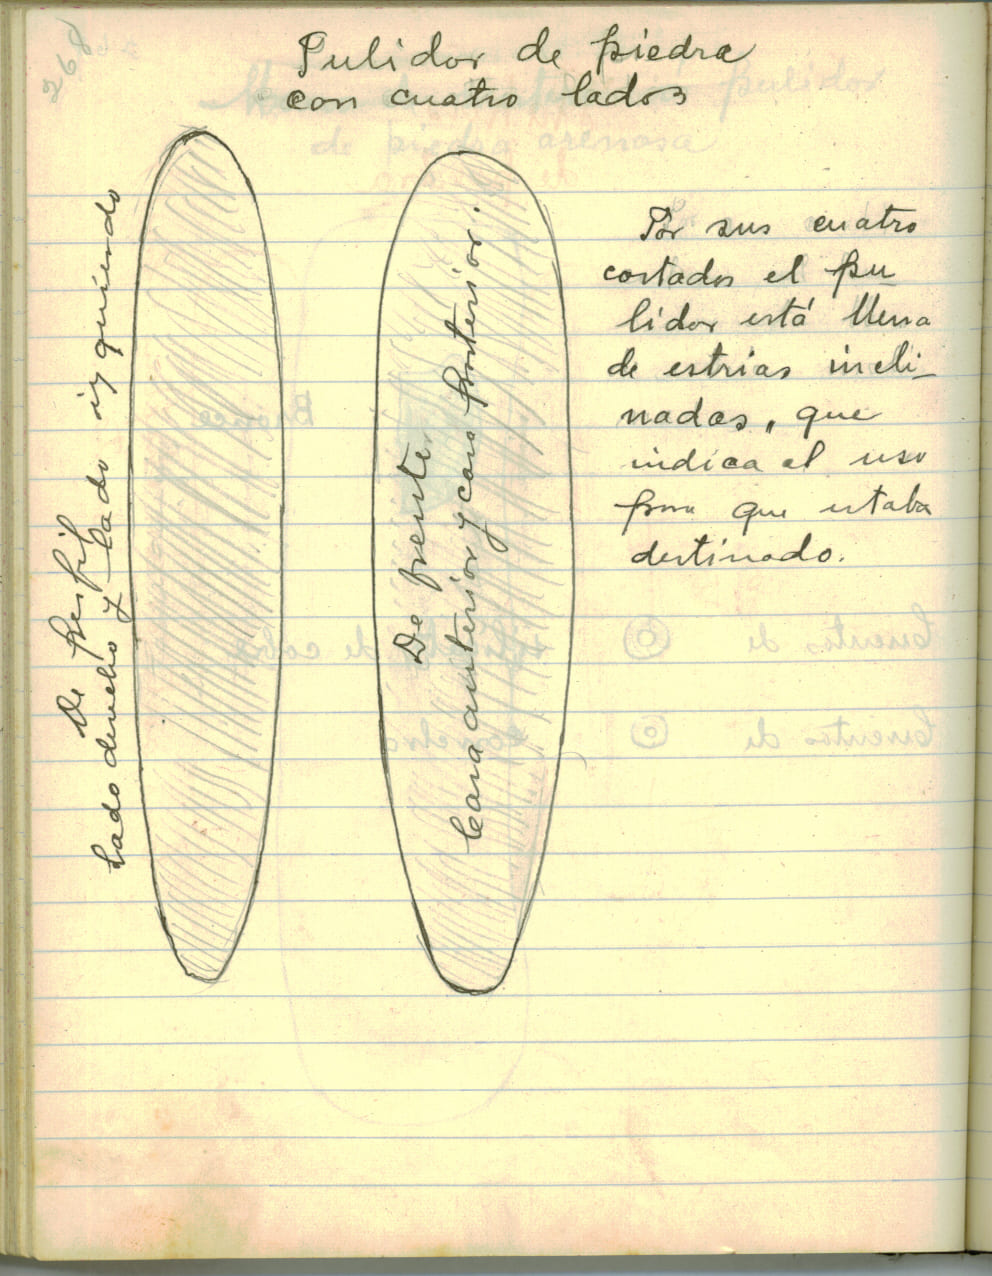 268
Pulidor de piedra
con cuatro lados
pulidor
de piedra arenosa
De perfil
Lado derecho y lado izquierdo
De frente
Cara anterior y cara posterior.
Por sus cuatro
costados el pu
lidor está llena
de estrias incli-
nadas, que
indica el uso
para que estaba
destinado.
Bronce